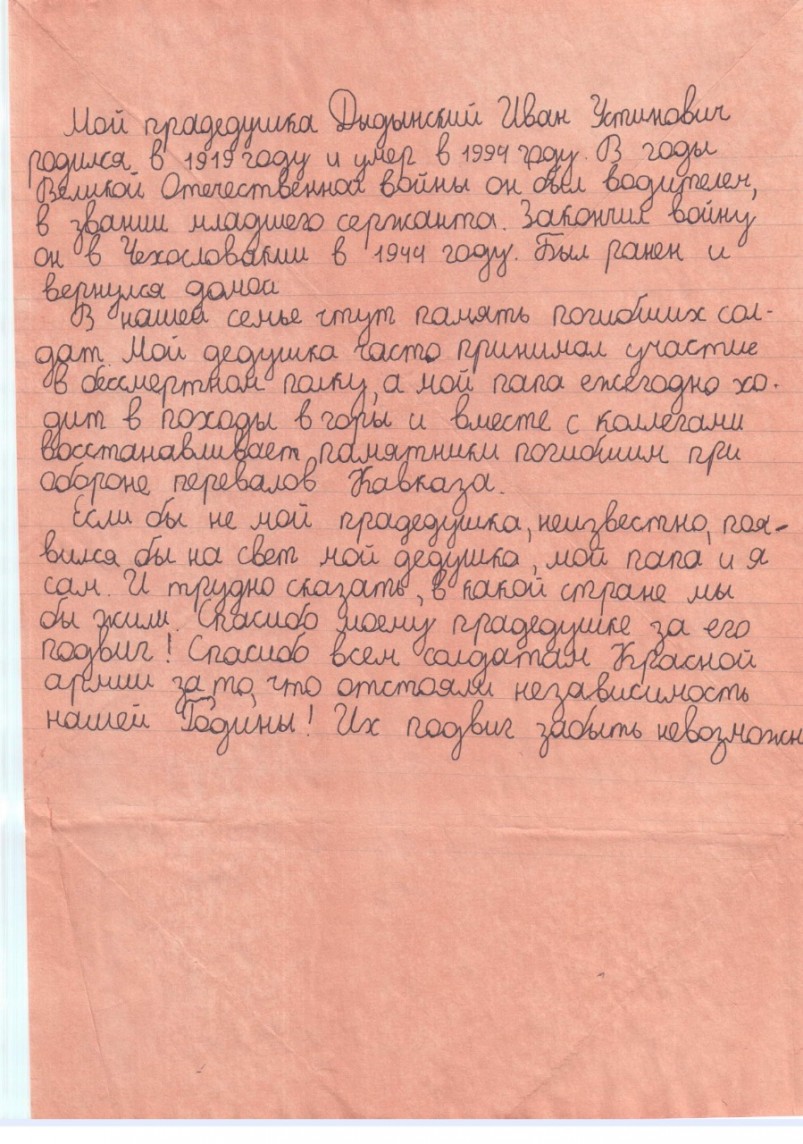 Мой прадедушка Дыдынский Иван Устинович
родился в 1919 году и умер в 1994 году. В годы
Великой Отечественной войны он был водителем,
в звании младшего сержанта. Закончил войну
он в Чехословакии в 1944 году. Был ранен и
вернулся домой
В нашей семье чтут память погибших сол-
дат. Мой дедушка часто принимал участие
в бессмертном полку, а мой папа ежегодно хо-
дит в походы в горы и вместе с коллегами
восстанавливает памятники погибшим при
обороне перевалов Кавказа.
Если бы не мой прадедушка, неизвестно, поя-
вился бы на свет мой дедушка, мой папа и я
сам. И трудно сказать, в какой стране мы
бы жили. Спасибо моему прадедушке за его
подвиг! Спасибо всем солдатам Красной
армии за то, что отстояли независимость
нашей Родины! Их подвиг забыть невозможн